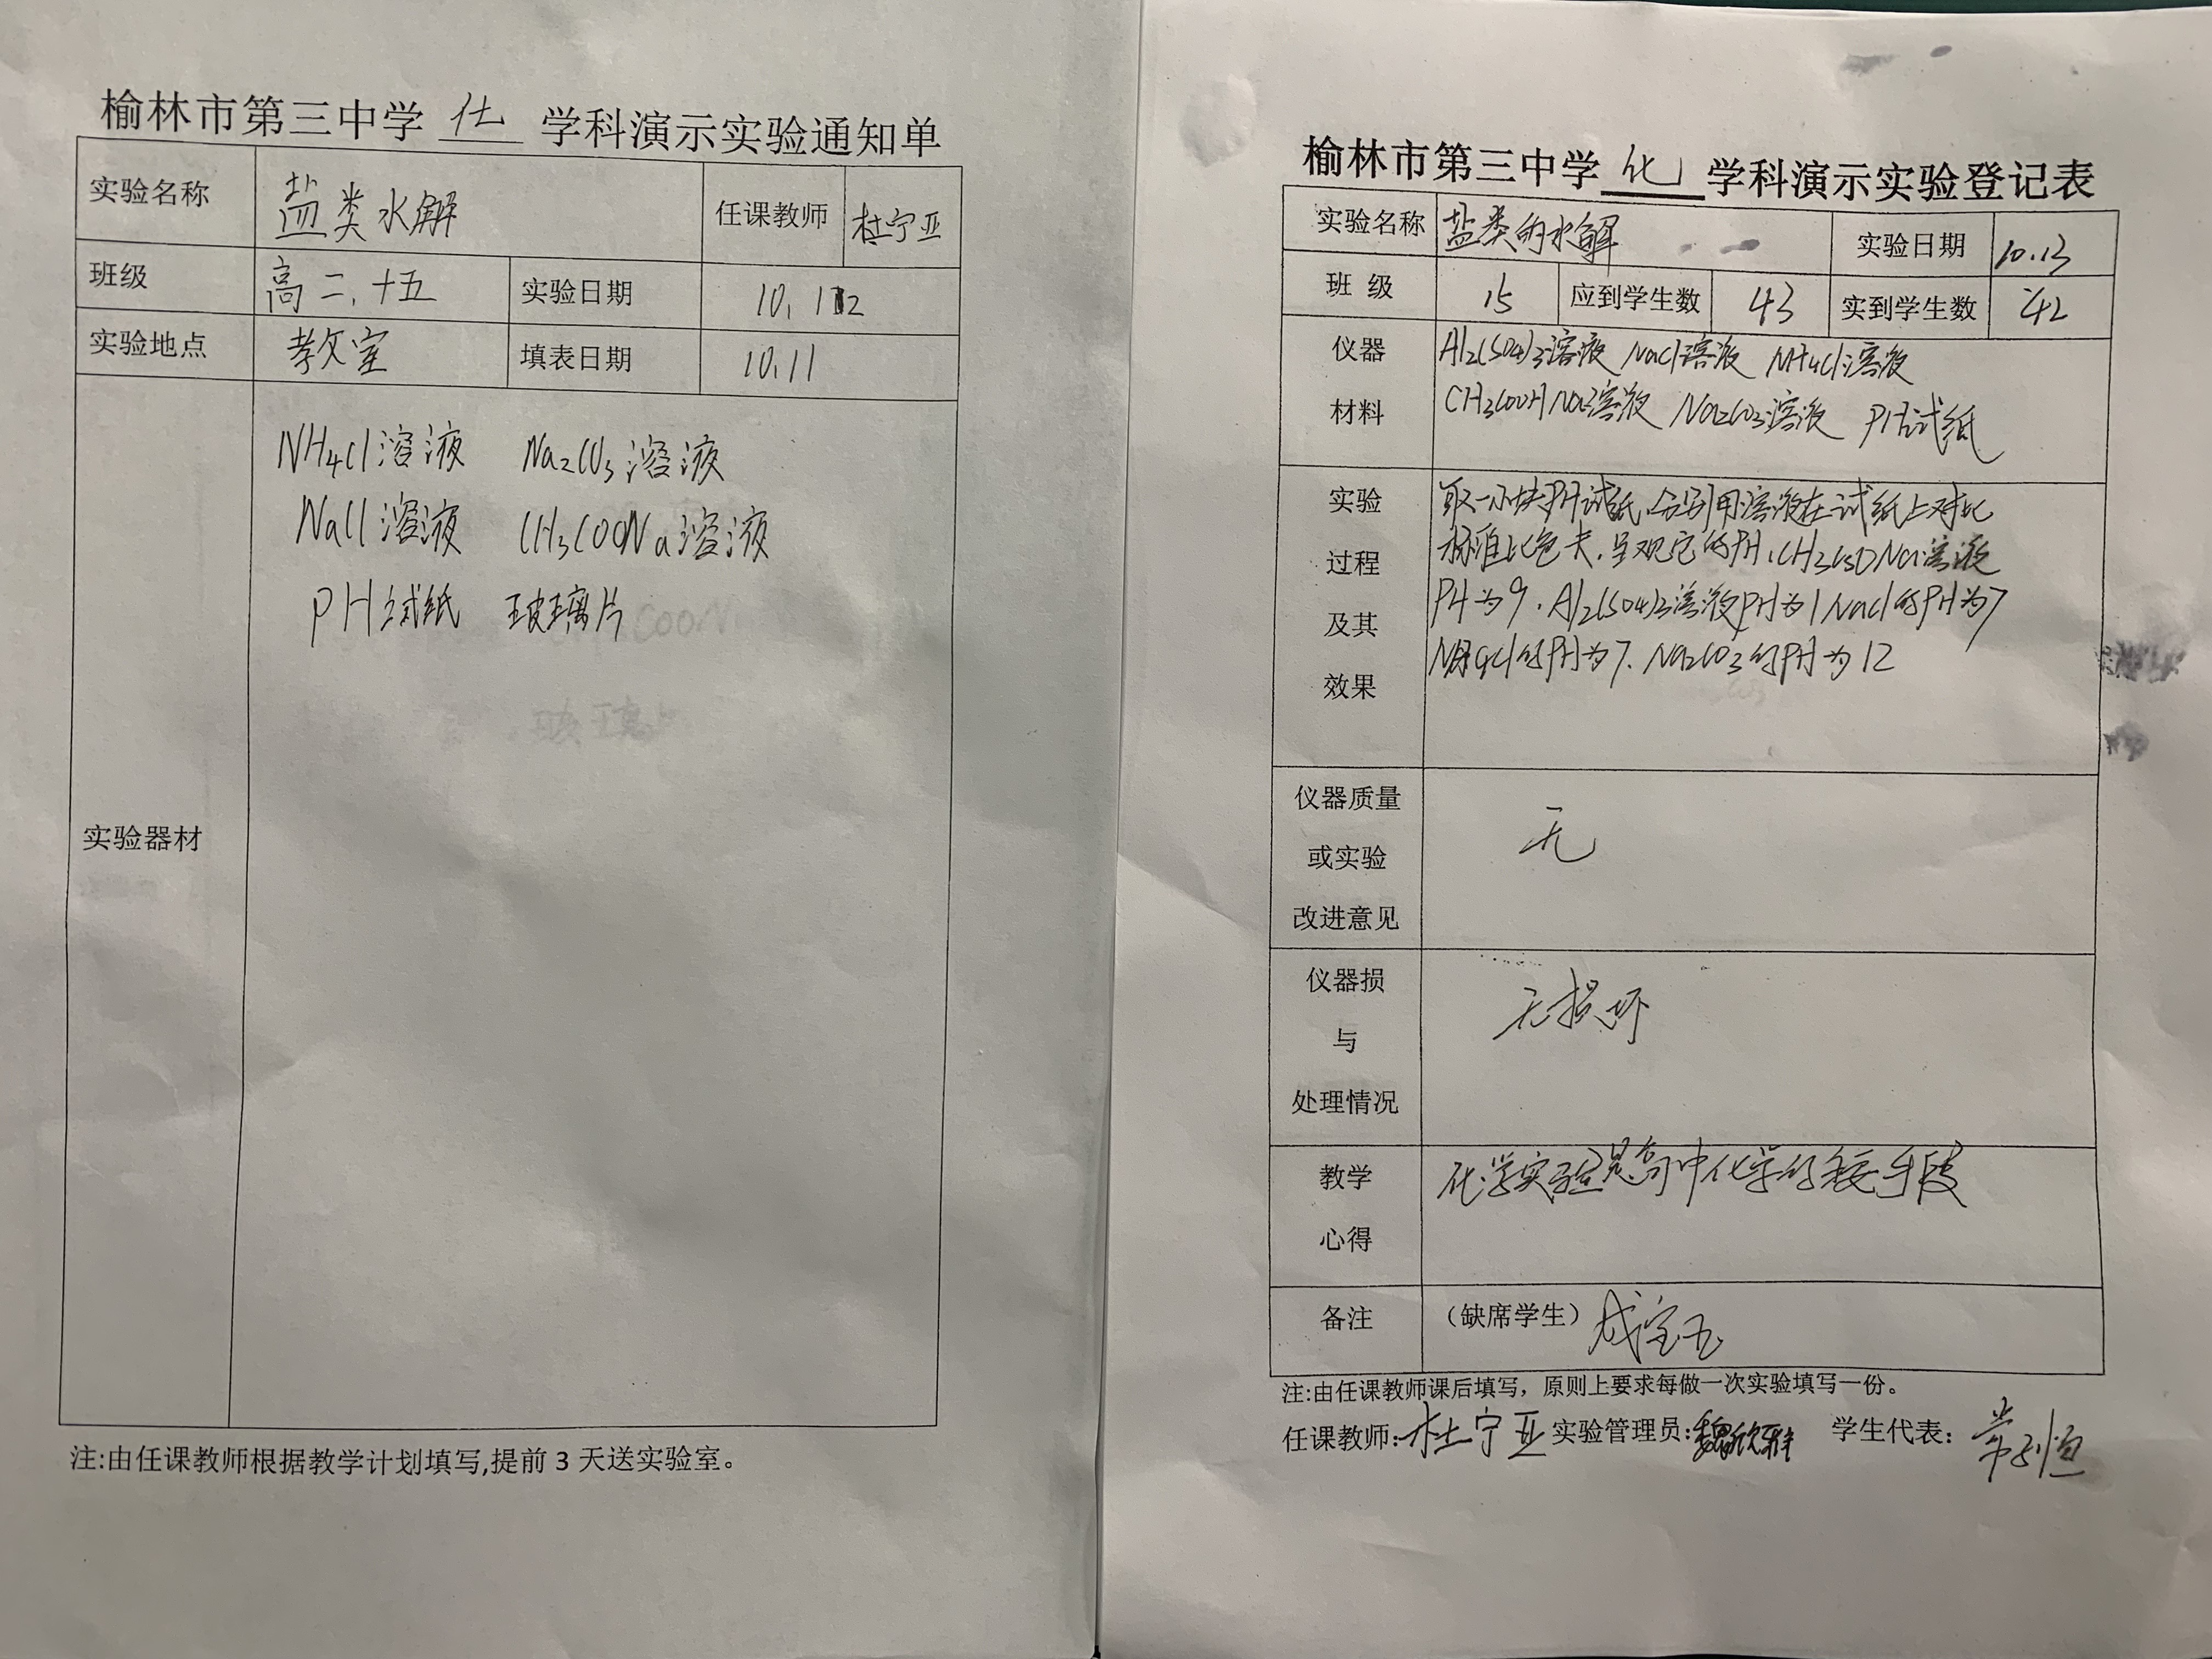 榆林市第三中学 化 学科演示实验通知单
实验名称 盐类水解 任课教师 杜宁亚
班级 高二、十五 实验日期 10.12
实验地点 教室 填表日期 10.11
实验器材
NH4Cl溶液 Na2CO3溶液
NaCl溶液 CH3COONa溶液
PH试纸 玻璃片
注:由任课教师根据教学计划填写,提前3天送实验室。
榆林市第三中学 化 学科演示实验登记表
实验名称 盐类的水解 实验日期 10.13
班 级 15 应到学生数 43 实到学生数 42
仪器
材料
Al2(SO4)3溶液 NaCl溶液 NH4Cl溶液
CH3COOHNa溶液 Na2CO3溶液 PH试纸
实验
过程
及其
效果
取一小块PH试纸,分别用溶液在试纸上对比
标准比色卡.呈现它的PH,CH3COONa溶液
PH为9.Al2(SO4)3溶液PH为1 NaCl的PH为7
NH4Cl的PH为7.Na2CO3的PH为12
仪器质量
或实验
改进意见
无
仪器损
与
处理情况
无损坏
教学
心得
化学实验是高中化学的手段
备注 (缺席学生)
注:由任课教师课后填写，原则上要求每做一次实验填写一份。
任课教师:杜宁亚 实验管理员:魏欣雅 学生代表: